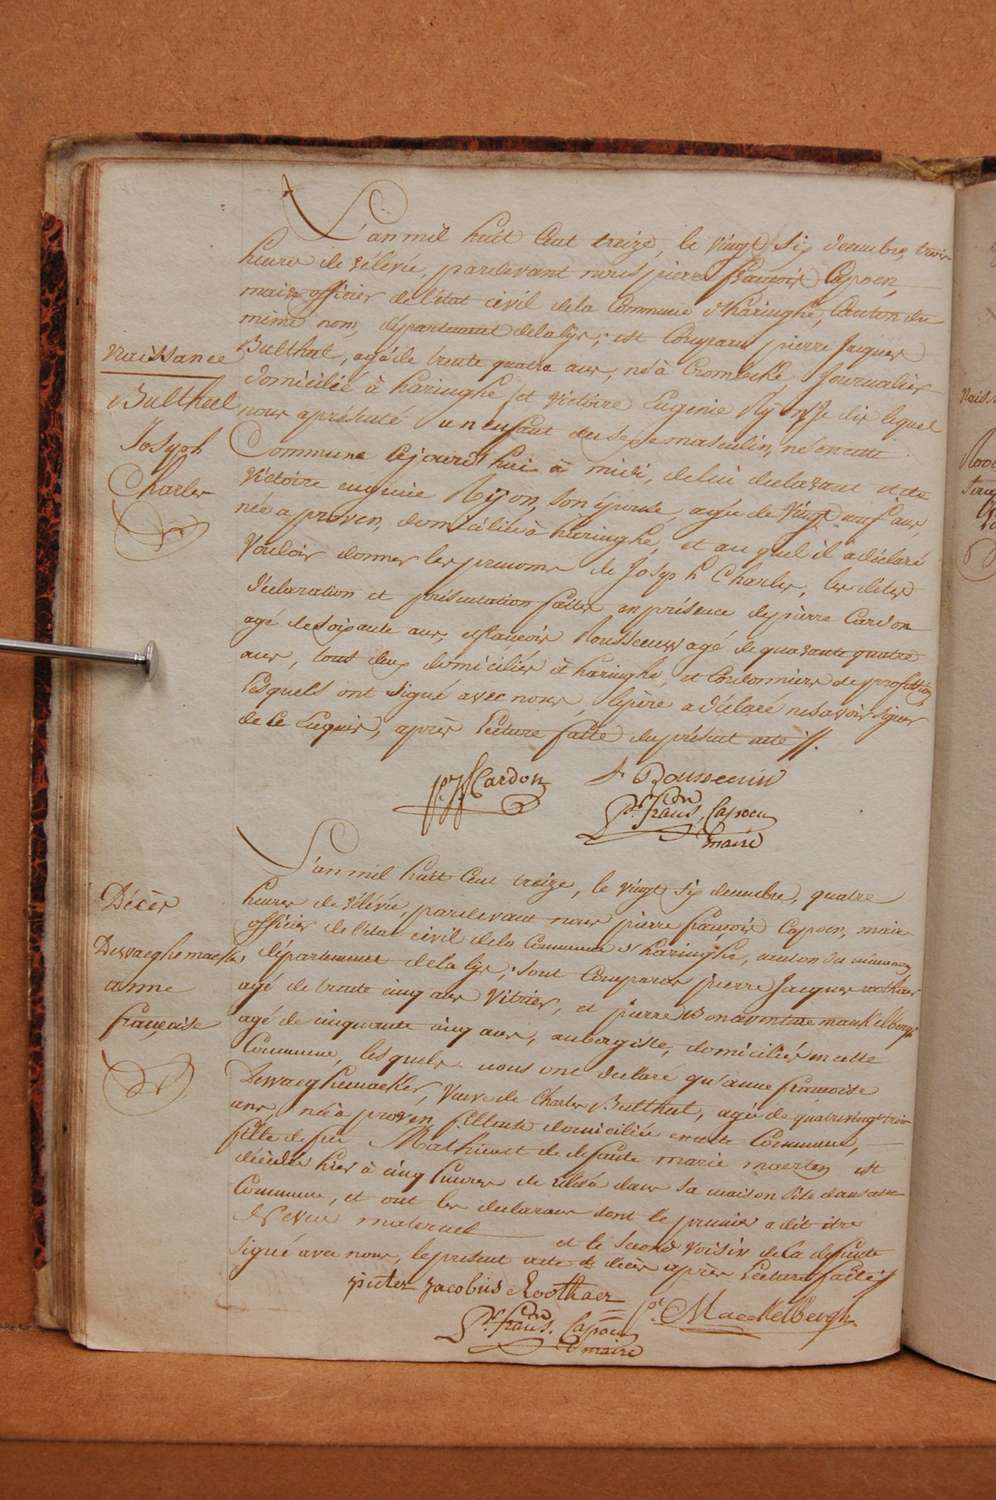 L'an mil huit Cent treize, le vingt six decembre, trois
heures de rélévée, pardevant nous pierre françois Capoen,
maire officier de l'état civil de la Commune d'haringhe, Canton du
même nom, département de la lijs, est Comparu pierre Jacques
Bultheel, agé de trente quatre ans, né à Crombeke, Journalier
domicilié à haringhe et victoire Eugenie Rijon, le dis lequel
nous a présenté un enfant du sexe masculin, né en cette
Commune Cejourd'hui à midi, de lui declarant et de
Victoire eugenie Rijon, son épouse, agée de vingt neuf ans,
née a proven, domiciliée à haringhe, et auquel il a déclaré
vouloir donner les prenoms de Joseph Charles, les dites
déclaration et présentation faites en présence de pierre Cardon
agé de soixante ans, et françois Rousseeuw agé de quarante quatre
ans, tout deux domiciliés à haringhe, et Cordonniers de profession,
lesquels ont signé avec nous, le père a déclaré ne savoir signer
de ce Enquis, après lecture faite du présent acte //.
naissance
Bultheel
Joseph
Charles
P. J. Cardon
f Rousseeuw
Pre frans. Capoen
maire
L'an mil huit Cent treize, le vingt six decembre, quatre
heures de rélévée, pardevant nous pierre françois Capoen, maire
officier de l'état civil de la Commune d'haringhe, canton du même nom,
département de la lijs, sont Comparus pierre Jacques roothaer
agé de trente cinq ans Vitrier, et pierre mackelbergh
agé de cinquante cinq ans, aubergiste, domiciliés en cette
Commune, lesquels nous ont declaré qu'anne françoise
Deswaeghemaeker, Veuve de Charles Bultheel, agée de quatrevingt trois
ans, née à proven, fileuse domiciliée en cette Commune,
fille de feu Mathieu et de defunte marie maerten est
décédée hier à cinq heures de dans sa maison sise dans cette
Commune, et ont les declarans dont le premier a dit être
neveu maternel et le second voisin de la defunte
signé avec nous, le présent acte de décès après lecture faite //
Décès
Deswaeghemaeker
anne
françoise
pieter Jacobus Roothaer
P. Mackelbergh
Pre frans. Capoen
maire